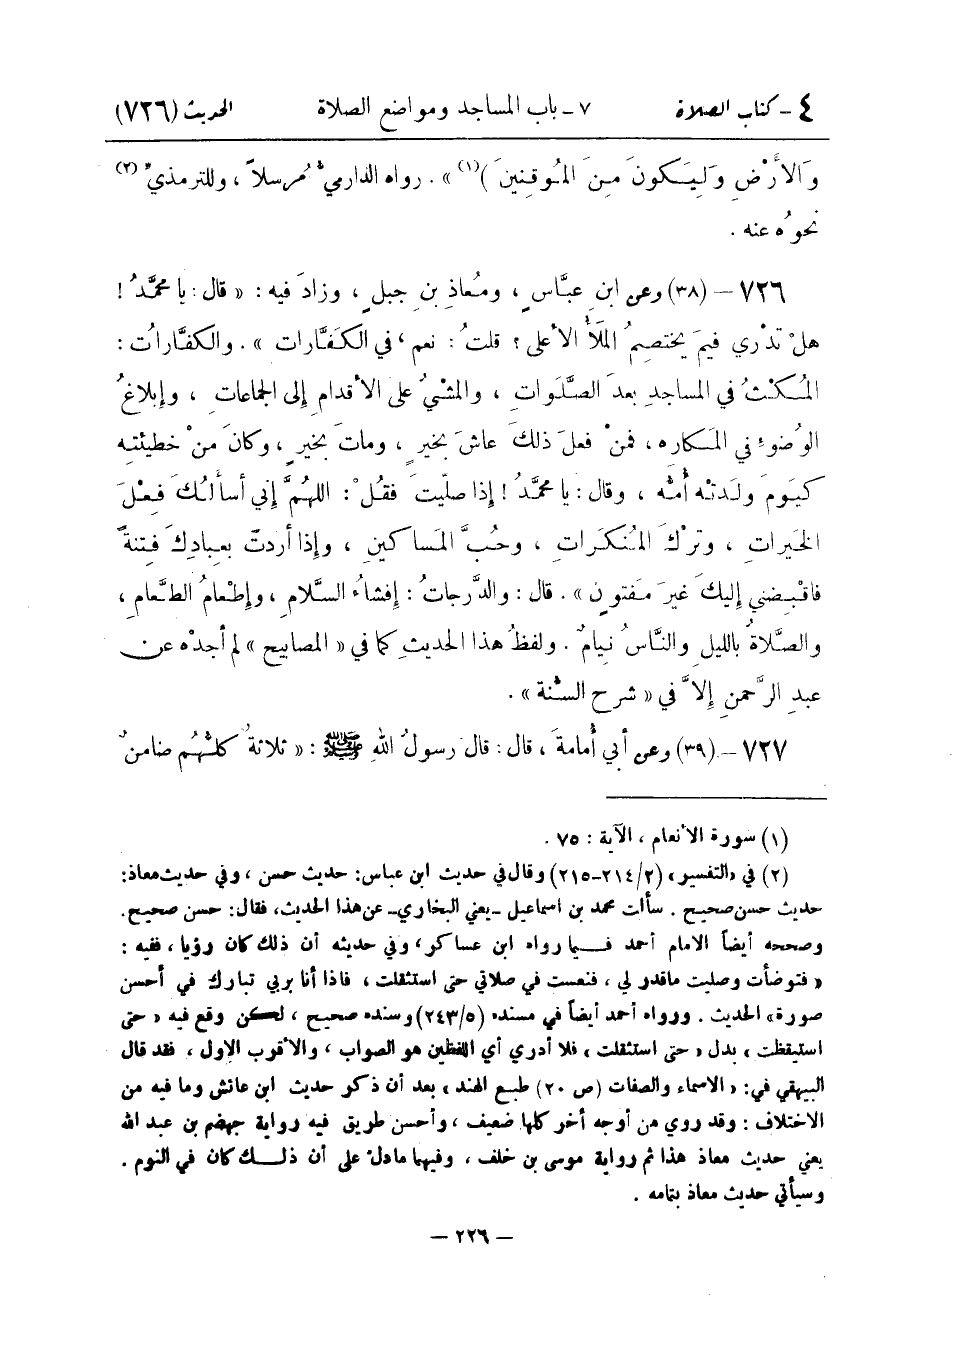 ٤ - كتاب الصلاة ٧ - باب المساجد ومواضع الصلاة الحديث (٧٢٦)
وَالأَرْضِ وَلِيَكُونَ مِنَ المُوقِنِينَ ﴾(١) » . رواه الدارميُّ مُرسلاً ، وللترمذيِّ(٢)
نحوُه عنه .
٧٢٦ - (٣٨) وعن ابنِ عبَّاسٍ ، ومُعاذِ بنِ جبلٍ ، وزادَ فيه : « قال : يا محمَّدُ !
هلْ تدْري فيمَ يختصِمُ المَلَأُ الأعلى ؟ قلتُ : نعم ، في الكَفَّارات » . والكفَّاراتُ :
المُكْثُ في المساجدِ بعدَ الصَّلَواتِ ، والمشْيُ على الأقدامِ إلى الجماعاتِ ، وإبلاغُ
الوُضوءِ في المَكاره ، فمنْ فعلَ ذلكَ عاشَ بخيرٍ ، وماتَ بخيرٍ ، وكانَ منْ خطيئتِه
كيَومَ ولدَتْه أمُّه ، وقال : يا محمَّدُ ! إذا صلّيتَ فقُلْ : اللهُمَّ إني أسألُكَ فِعْلَ
الخيراتِ ، وتركَ المُنكَراتِ ، وحُبَّ المَساكينِ ، وإذا أردتَ بعِبادِكَ فِتنةً
فاقْبِضني إليكَ غيرَ مَفتونٍ » . قال : والدَّرجاتُ : إفشاءُ السَّلامِ ، وإطْعامُ الطَّعامِ ،
والصَّلاةُ بالليلِ والنَّاسُ نِيامٌ . ولفظُ هذا الحديثِ كما في « المصابيح » لم أجدْه عن
عبدِ الرَّحمنِ إلاَّ في « شرح السُّنة » .
٧٢٧ - (٣٩) وعن أبي أُمامةَ ، قال : قال رسولُ اللهِ ﷺ : « ثلاثةٌ كلُّهُم ضامنٌ
(١) سورة الأنعام ، الآية : ٧٥ .
(٢) في «التفسير» (٢/ ٢١٤-٢١٥) وقال في حديث ابن عباس: حديث حسن ، وفي حديث معاذ:
حديث حسن صحيح . سألت محمد بن اسماعيل -يعني البخاري- عن هذا الحديث، فقال: حسن صحيح.
وصححه أيضاً الامام أحمد فيما رواه ابن عساكر، وفي حديثه أن ذلك كان رؤيا ، ففيه :
« فتوضأت وصليت ماقدر لي ، فنعست في صلاتي حتى استثقلت ، فاذا أنا بربي تبارك في أحسن
صورة» الحديث . ورواه أحمد أيضاً في مسنده (٥/ ٢٤٣) وسنده صحيح ، لكن وقع فيه « حتى
استيقظت » بدل « حتى استثقلت » فلا أدري أي اللفظين هو الصواب ، والأقرب الاول ، فقد قال
البيهقي في: « الاسماء والصفات (ص ٢٠) طبع الهند » بعد أن ذكر حديث ابن عائش وما فيه من
الاختلاف : وقد روي من أوجه أخر كلها ضعيف ، وأحسن طريق فيه رواية جهضم بن عبد الله
يعني حديث معاذ هذا ثم رواية موسى بن خلف ، وفيهما مادل على أن ذلك كان في النوم .
وسيأتي حديث معاذ بتمامه .
— ٢٢٦ —